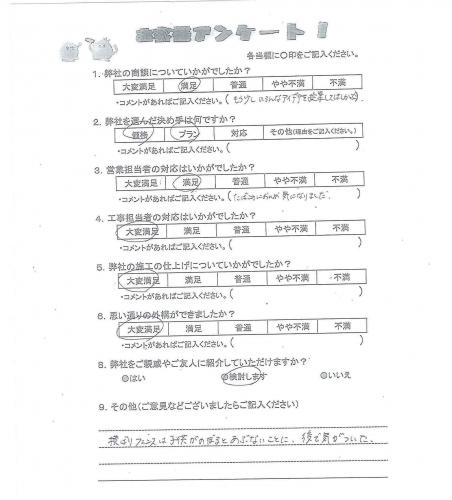 お客様アンケート!
各当欄に○印をご記入ください。
1. 弊社の商談についていかがでしたか?
大変満足 満足 普通 やや不満 不満
・コメントがあればご記入ください。(もう少しいろんなアイデアを提案してほしかった)
2. 弊社を選んだ決め手は何ですか?
価格 プラン 対応 その他(理由をご記入ください。)
・コメントがあればご記入ください。( )
3. 営業担当者の対応はいかがでしたか?
大変満足 満足 普通 やや不満 不満
・コメントがあればご記入ください。(たばこのにおいが気になりました。
4. 工事担当者の対応はいかがでしたか?
大変満足 満足 普通 やや不満 不満
・コメントがあればご記入ください。( )
5. 弊社の施工の仕上げについていかがでしたか?
大変満足 満足 普通 やや不満 不満
・コメントがあればご記入ください。( )
6. 思い通りの外構ができましたか?
大変満足 満足 普通 やや不満 不満
・コメントがあればご記入ください。( )
8. 弊社をご親戚やご友人に紹介していただけますか?
◎はい ◎検討します ◎いいえ
9. その他(ご意見などございましたらご記入ください)
横ばりフェンスは子供がのぼるとあぶないことに、後で気がついた。